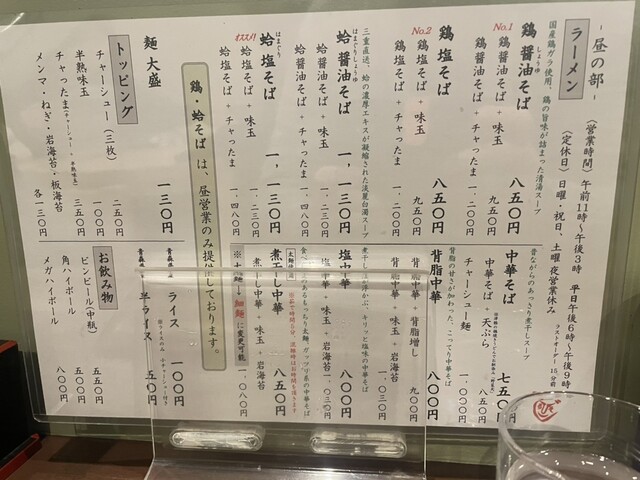 -昼の部-
〈営業時間〉午前11時〜午後3時 平日午後6時〜午後9時
ラストオーダー 15分前
〈定休日〉日曜・祝日、土曜 夜営業休み
ラーメン
国産鶏ガラ使用、鶏の旨味が詰まった清湯スープ
しょうゆ
鶏醤油そば 八五〇円
No.1 鶏醤油そば+味玉 九五〇
鶏醤油そば+チャったま 一、二〇〇
鶏塩そば 八五〇円
No.2 鶏塩そば+味玉 九五〇
鶏塩そば+チャったま 一、二〇〇
三重直送、蛤の濃厚エキスが凝縮された淡麗白濁スープ
はまぐりしょうゆ
蛤醤油そば 一、一三〇円
蛤醤油そば+味玉 一、二三〇
蛤醤油そば+チャったま 一、四八〇
はまぐり
蛤塩そば 一、一三〇円
オススメ! 蛤塩そば+味玉 一、二三〇
蛤塩そば+チャったま 一、四八〇
鶏・蛤そば は、昼営業のみ提供しております。
麺 大盛 一三〇円
トッピング
チャーシュー(三枚) 二五〇
半熟味玉 一〇〇
チャったま(チャーシュー・半熟味玉) 三五〇
メンマ・ねぎ・岩海苔・板海苔 各一三〇
昔ながらのあっさり煮干しスープ
中華そば 七五〇円
中華そば+天ぷら 八五〇
チャーシュー麺 一、〇〇〇
背脂の甘さが加わった、こってり中華そば
背脂中華 八〇〇円
背脂中華+背脂増し 九〇〇
背脂中華+味玉+岩海苔 一、〇三〇
煮干しの浮かぶ、キリッと塩味の中華そば
塩中華 八〇〇円
塩中華+味玉+岩海苔 一、〇三〇
煮干し中華 八五〇円
煮干し中華+味玉+岩海苔 一、〇八〇
※太麺→細麺に変更可能
ライス 一〇〇円
半ライス 五〇円
お飲み物
ビンビール(中瓶) 五五〇
角ハイボール 五五〇
メガハイボール 八〇〇